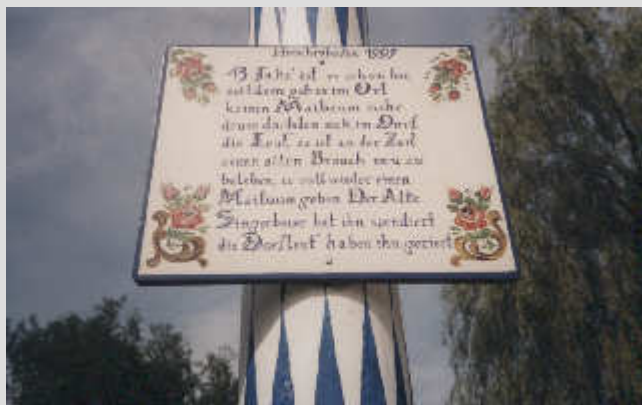 1997
13 Jahr' ist es schon her
seitdem gab es im Ort
keinen Maibaum mehr
drum dachten sich im Dorf
die Leut' es ist an der Zeit
einen alten Brauch neu zu
beleben, es soll wieder einen
Maibaum geben. Der Alte
Singerbauer hat ihn spendiert
die Dorfleut' haben ihn geziert